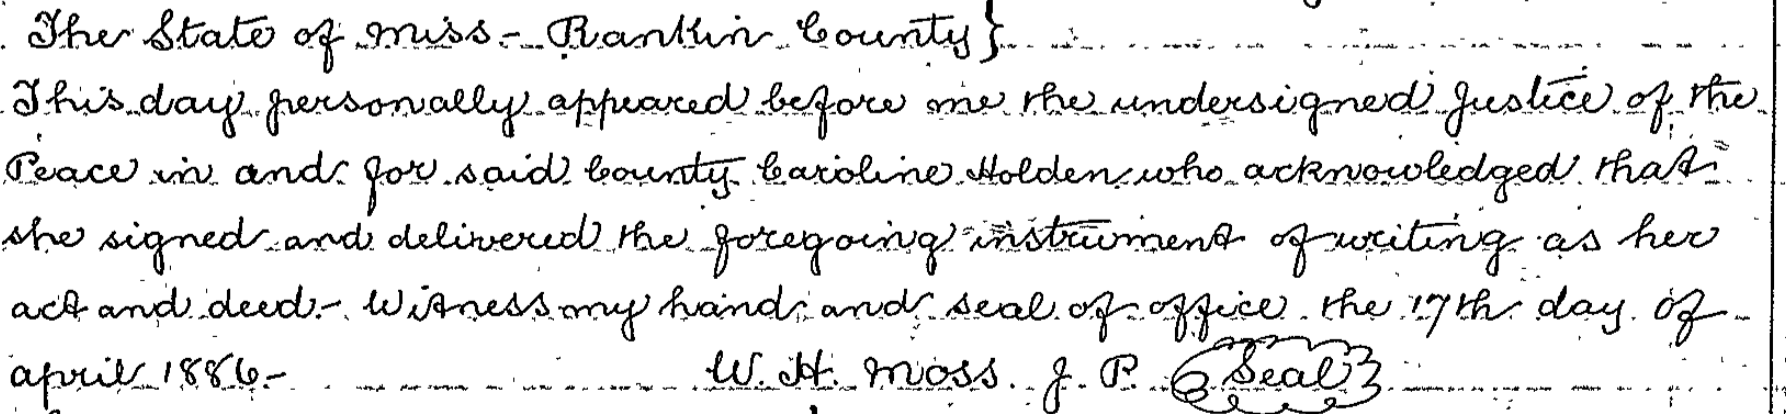 The State of Miss - Rankin County}
This day personally appeared before me the undersigned Justice of the
Peace in and for said County Caroline Holden who acknowledged that
she signed and delivered the foregoing instrument of writing as her
act and deed - Witness my hand and seal of office the 17th day of
april 1886 -
W. H. Moss. J. P. Seal